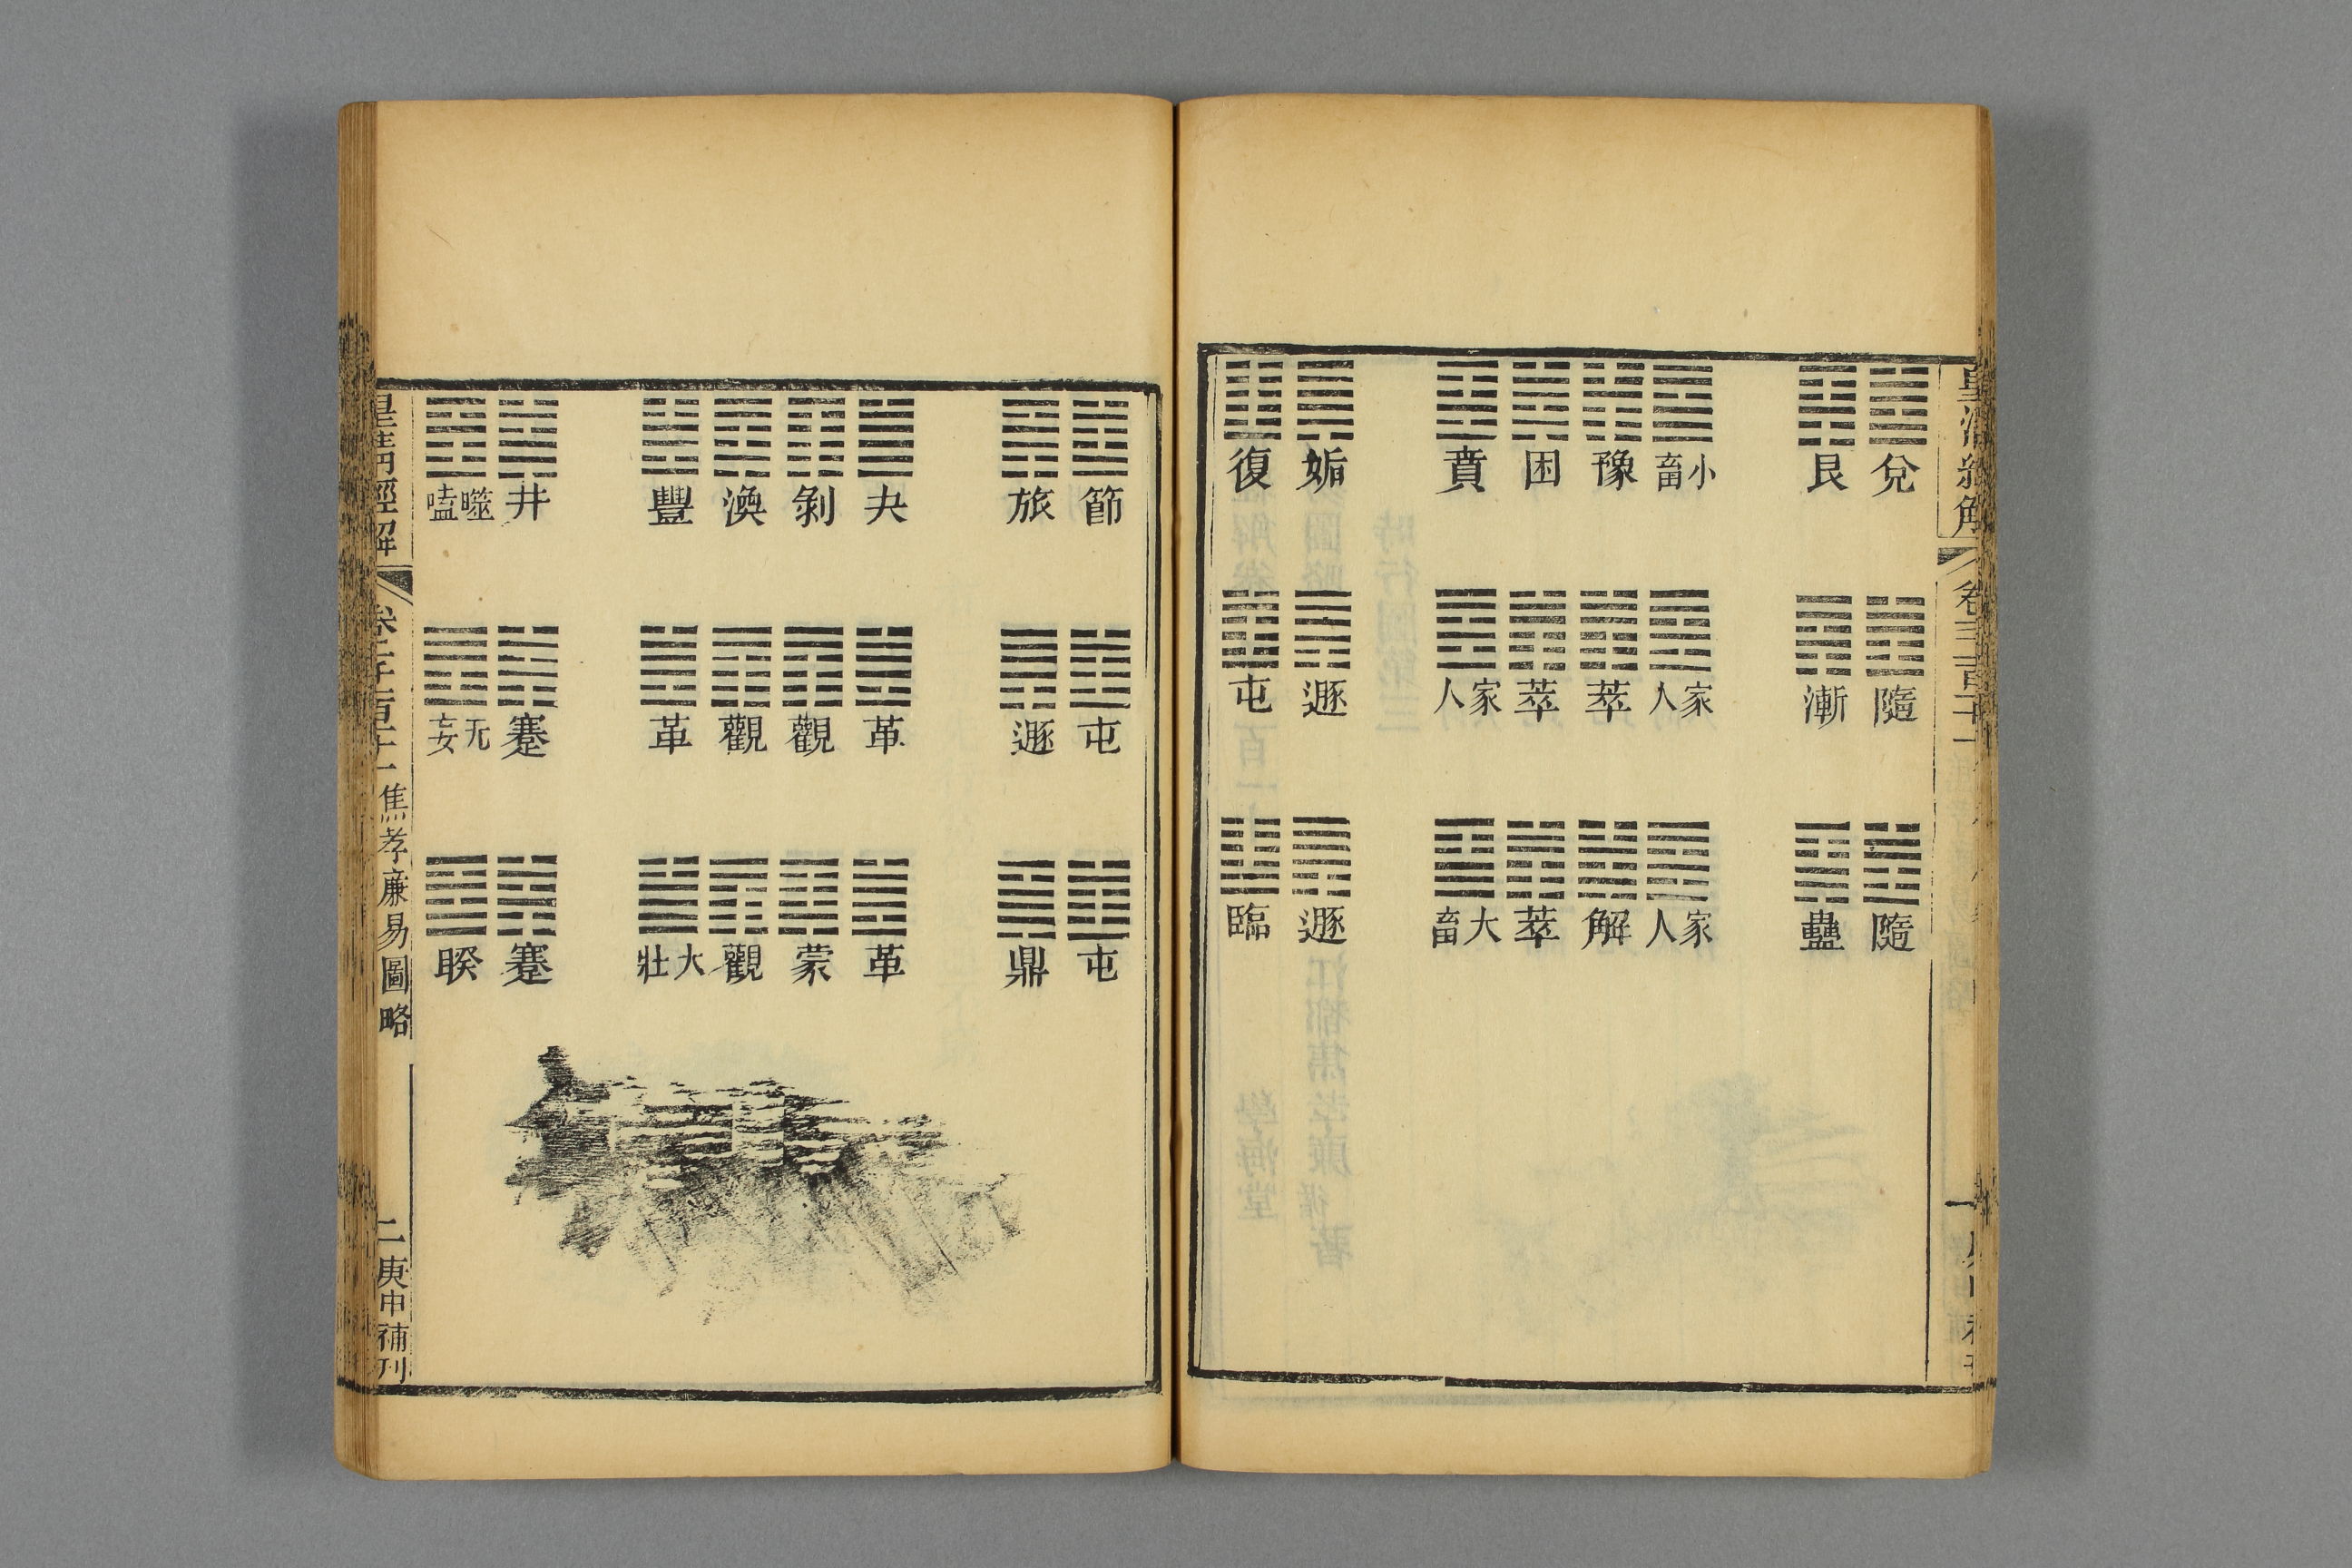 皇清經解
卷三百二十一
一
兌 隨 隨
艮 漸 蠱
小畜 家人 家人
豫 萃 解
困 萃 萃
賁 家人 大畜
姤 遯 遯
復 屯 臨
節 屯 屯
旅 遯 鼎
夬 革 革
剝 觀 蒙
渙 觀 觀
豐 革 大壯
井 蹇 蹇
噬嗑 无妄 睽
皇清經解
焦孝廉易圖略
二
庚申補刊